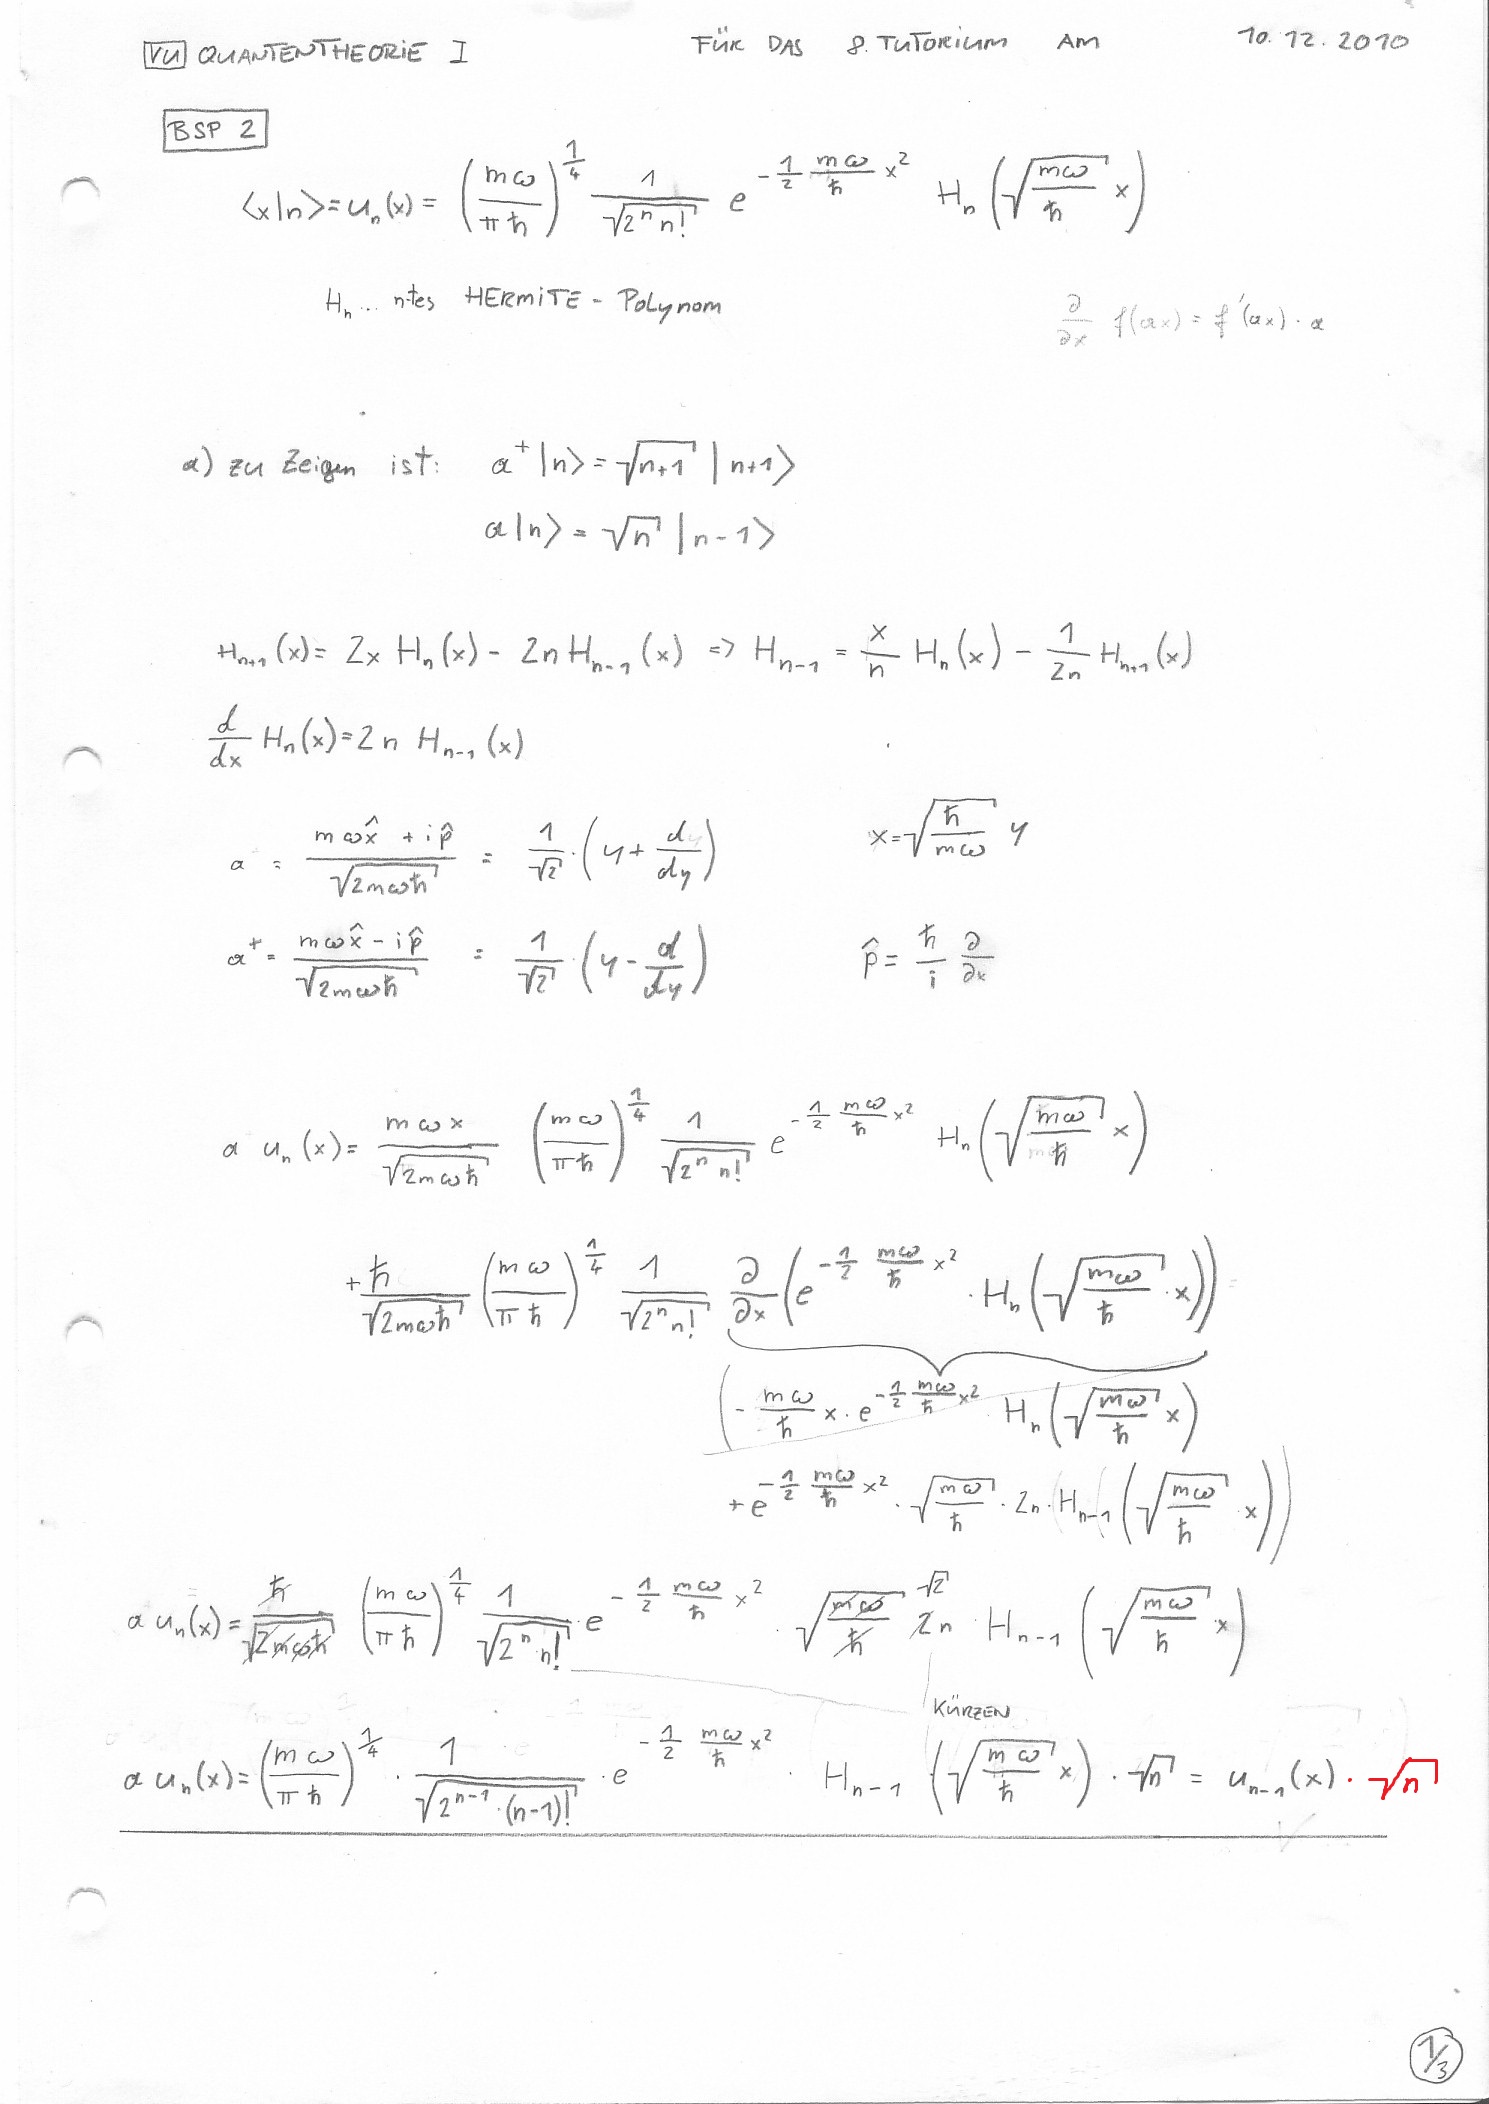 VU QUANTENTHEORIE I FÜR DAS 8. TUTORIUM AM 10.12.2010
BSP 2
⟨x|n⟩ = u_n(x) = (mω/πħ)^(1/4) 1/√(2^n n!) e^(-1/2 mω/ħ x²) H_n(√(mω/ħ) x)
H_n ... n-tes HERMITE - Polynom
∂/∂x f(ax) = f'(ax) · a
a) zu Zeigen ist: a⁺|n⟩ = √(n+1) |n+1⟩
a|n⟩ = √n |n-1⟩
H_(n+1)(x) = 2x H_n(x) - 2n H_(n-1)(x) => H_(n-1) = x/n H_n(x) - 1/(2n) H_(n+1)(x)
d/dx H_n(x) = 2n H_(n-1)(x)
a = (mωx̂ + ip̂)/√(2mωħ) = 1/√2 · (y + d/dy) x = √(ħ/mω) y
a⁺ = (mωx̂ - ip̂)/√(2mωħ) = 1/√2 · (y - d/dy) p̂ = ħ/i ∂/∂x
a u_n(x) = mωx/√(2mωħ) (mω/πħ)^(1/4) 1/√(2^n n!) e^(-1/2 mω/ħ x²) H_n(√(mω/ħ) x)
+ ħ/√(2mωħ) (mω/πħ)^(1/4) 1/√(2^n n!) ∂/∂x (e^(-1/2 mω/ħ x²) · H_n(√(mω/ħ) · x))
(- mω/ħ x · e^(-1/2 mω/ħ x²) H_n(√(mω/ħ) x)
+ e^(-1/2 mω/ħ x²) · √(mω/ħ) · 2n · H_(n-1)(√(mω/ħ) x))
a u_n(x) = ħ/√(2mωħ) (mω/πħ)^(1/4) 1/√(2^n · n!) · e^(-1/2 mω/ħ x²) · √(mω/ħ) √2 2n · H_(n-1)(√(mω/ħ) · x)
KÜRZEN
a u_n(x) = (mω/πħ)^(1/4) · 1/√(2^(n-1) · (n-1)!) · e^(-1/2 mω/ħ x²) · H_(n-1)(√(mω/ħ) x) · √n = u_(n-1)(x) · √n
1/3